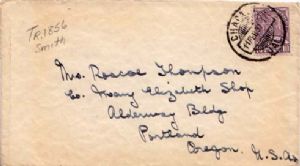 Tr. 1856
Smith
Mrs. Roscoe Thompson
Co. Mary Elizabeth Shop
Alderway Bldg
Portland
Oregon. U.S.A.